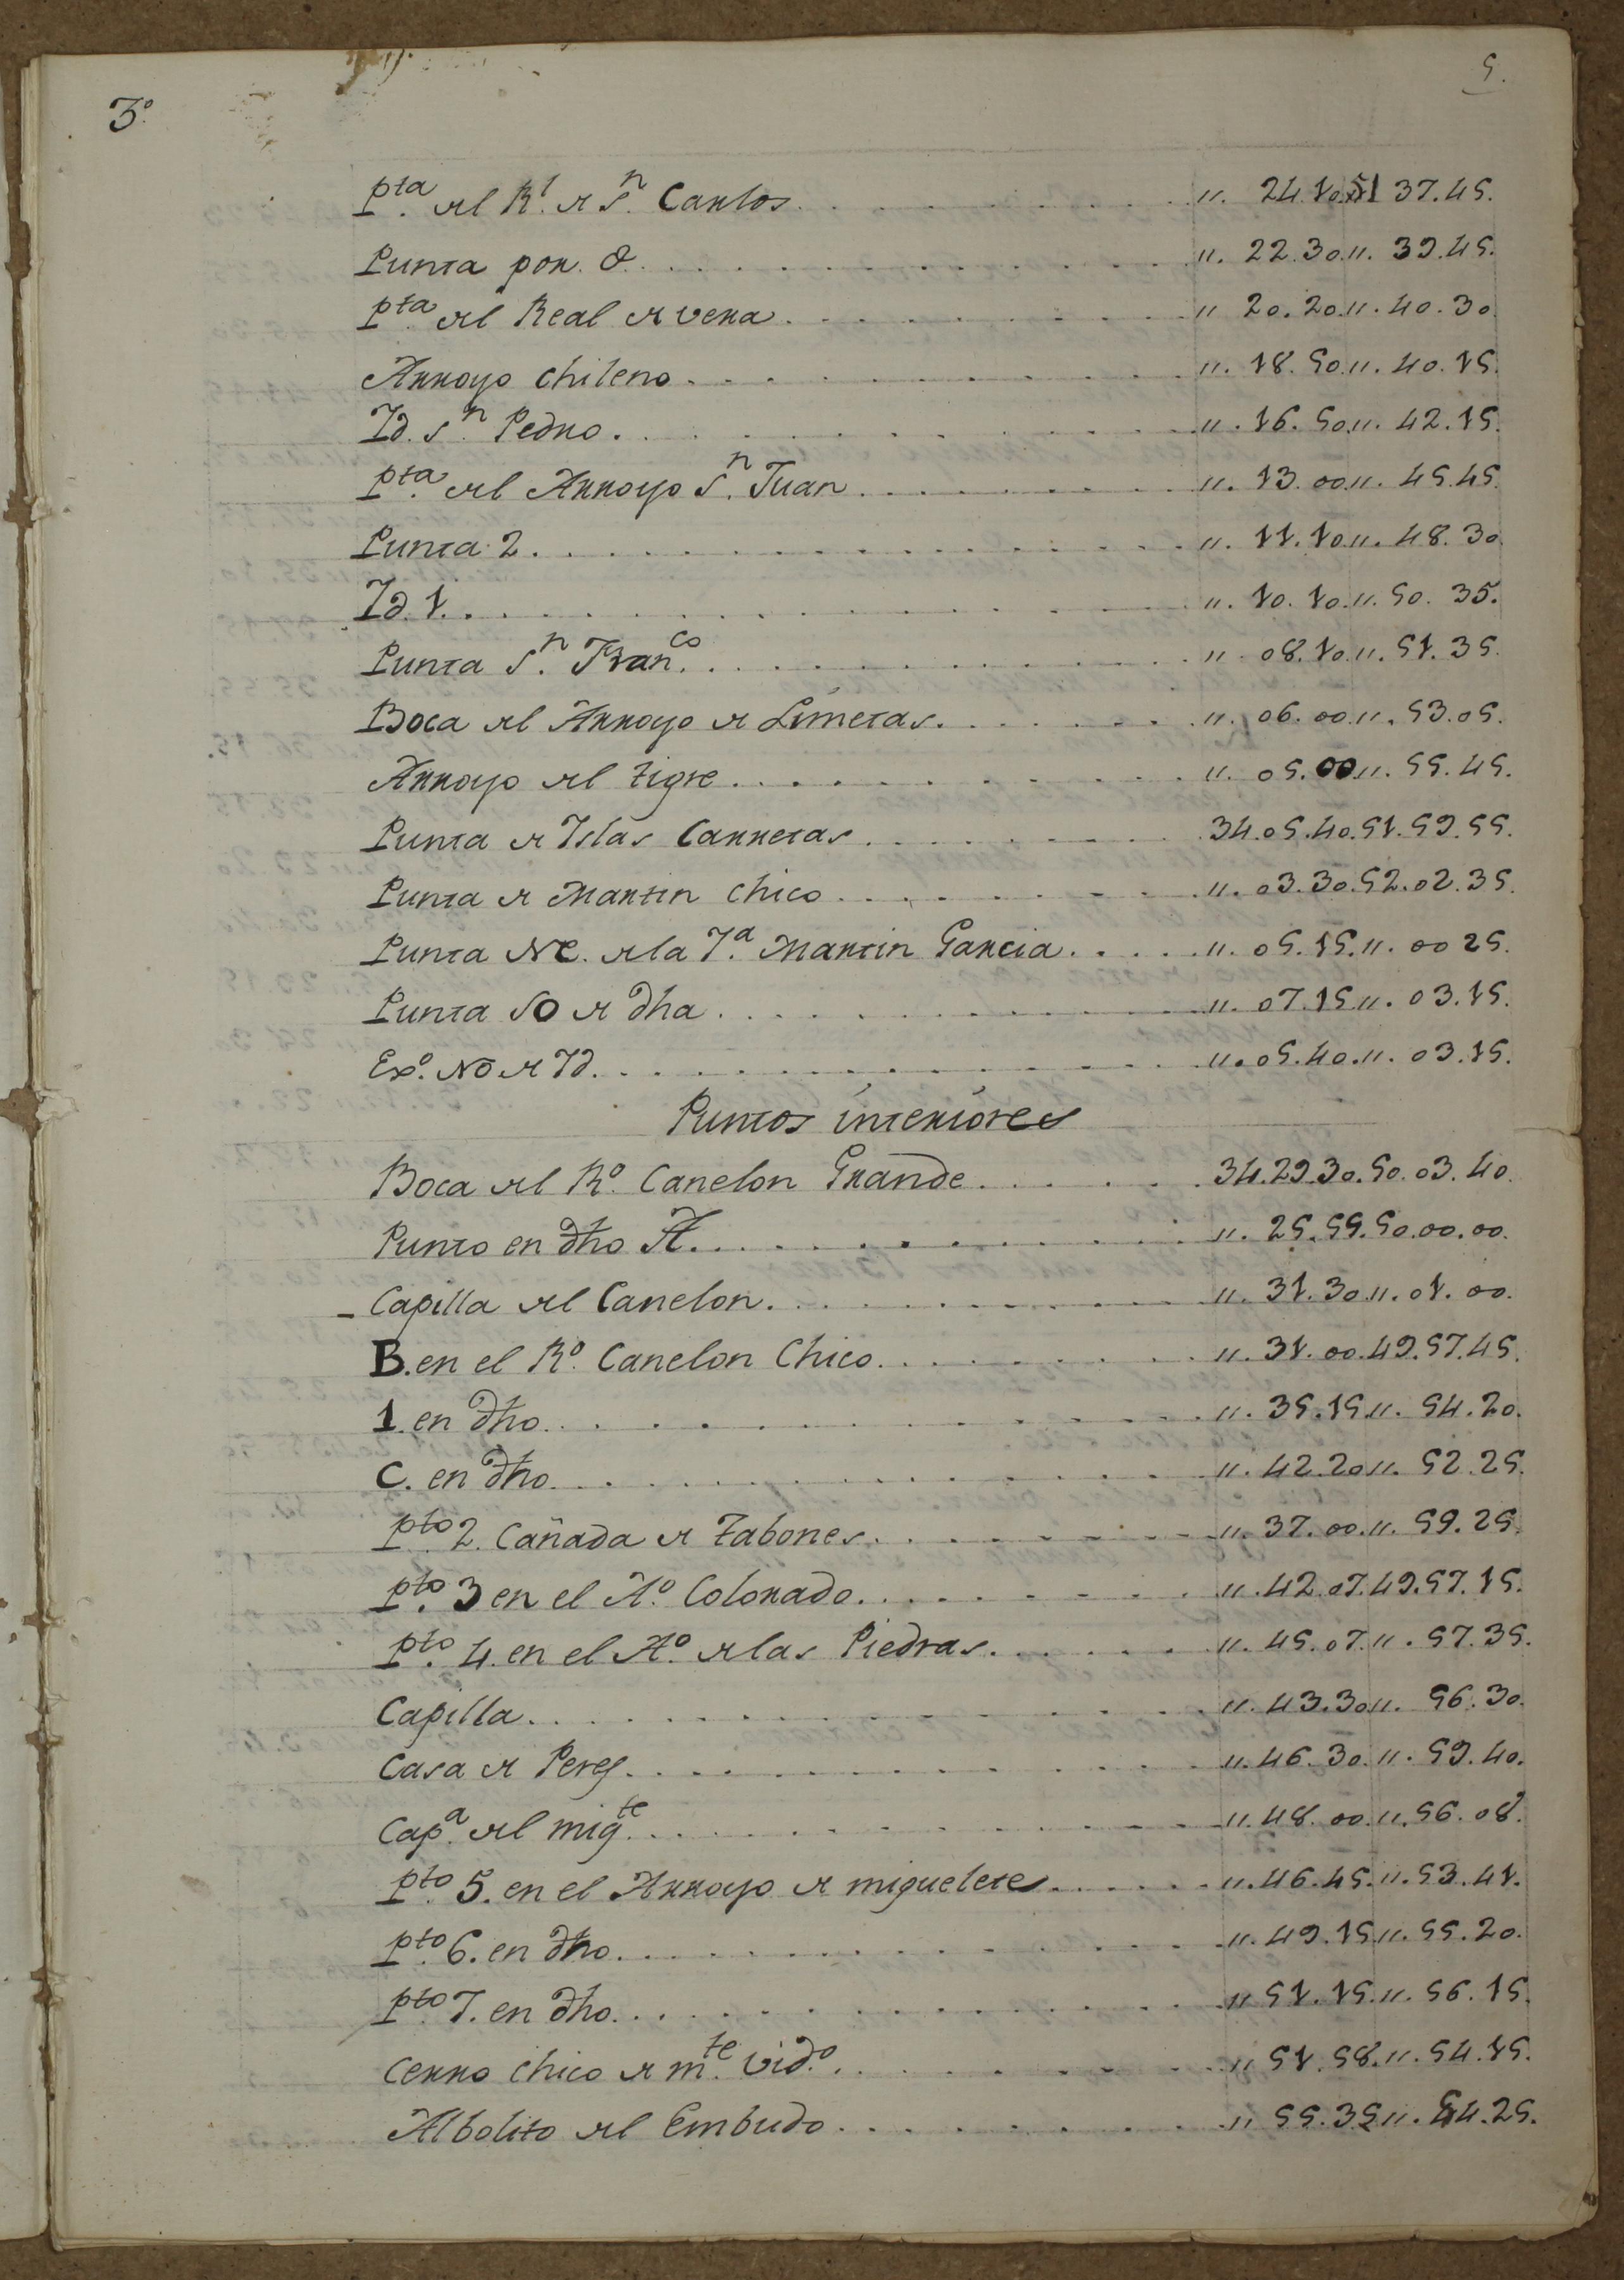 5.
3º
Pta. del Rl. de Sn. Carlos . . . . . . . . . . . . „. 24.10.51 37.45.
Punta por. O. . . . . . . . . . . . . . . „. 22.30.„. 39.45.
Pta. del Real de vera . . . . . . . . . . . „ 20.20.„. 40.30
Arroyo chileno . . . . . . . . . . . . . „. 18.50.„. 40.15.
Id. Sn. Pedro . . . . . . . . . . . . . . „. 16.50.„. 42.15.
Pta. del Arroyo Sn. Juan . . . . . . . . . „. 13.00.„. 45.45.
Punta 2 . . . . . . . . . . . . . . . . „. 11.10.„. 48.30
Id. 1. . . . . . . . . . . . . . . . . . „. 10.10.„. 50.35.
Punta Sn. Franco. . . . . . . . . . . . . . „. 08.10.„. 51.35.
Boca del Arroyo de Limetas . . . . . . . . „. 06.00.„. 53.05.
Arroyo del tigre . . . . . . . . . . . . „. 05.00.„. 55.45.
Punta de Islas Carretas . . . . . . . . . 34.05.40.51.59.55.
Punta de Martin chico . . . . . . . . . . „. 03.30.52.02.35.
Punta NE. de la Ia. Martin Garcia . . . . . „. 05.15.„. 00 25.
Punta SO de dha . . . . . . . . . . . . . „. 07.15.„. 03.15.
Exº. NO de Id. . . . . . . . . . . . . . . „. 05.40.„. 03.15.
Puntos interiores
Boca del Rº. Canelon Grande . . . . . . . 34.29.30.50.03.40.
Punto en dho A. . . . . . . . . . . . . . „. 25.55.50.00.00.
Capilla del Canelon . . . . . . . . . . . „. 31.30.„. 01.00.
B. en el Rº. Canelon Chico . . . . . . . . . „. 31.00.49.57.45.
1. en dho . . . . . . . . . . . . . . . „. 35.15.„. 54.20.
C. en dho . . . . . . . . . . . . . . . „. 42.20.„. 52.25.
Pto. 2. Cañada de tabones . . . . . . . . . „. 37.00.„. 59.25.
Pto. 3 en el Aº. Colorado . . . . . . . . . „. 42.07.49.57.15.
Pto. 4. en el Aº. de las Piedras . . . . . . „. 45.07.„. 57.35.
Capilla . . . . . . . . . . . . . . . . „. 43.30.„. 56.30.
Casa de Perez . . . . . . . . . . . . . . „. 46.30.„. 59.40.
Capa. del migte. . . . . . . . . . . . . . . „. 48.00.„. 56.08.
Pto. 5. en el Arroyo de migueletes . . . . . „. 46.45.„. 53.41.
Pto. 6. en dho . . . . . . . . . . . . . . „. 49.15.„. 55.20.
Pto. 7. en dho . . . . . . . . . . . . . . „ 51.15.„. 56.15.
Cerro chico de mte. vidº. . . . . . . . . . . „ 51.58.„. 54.15.
Albolito del Embudo . . . . . . . . . . . „ 55.35.„. 54.25.